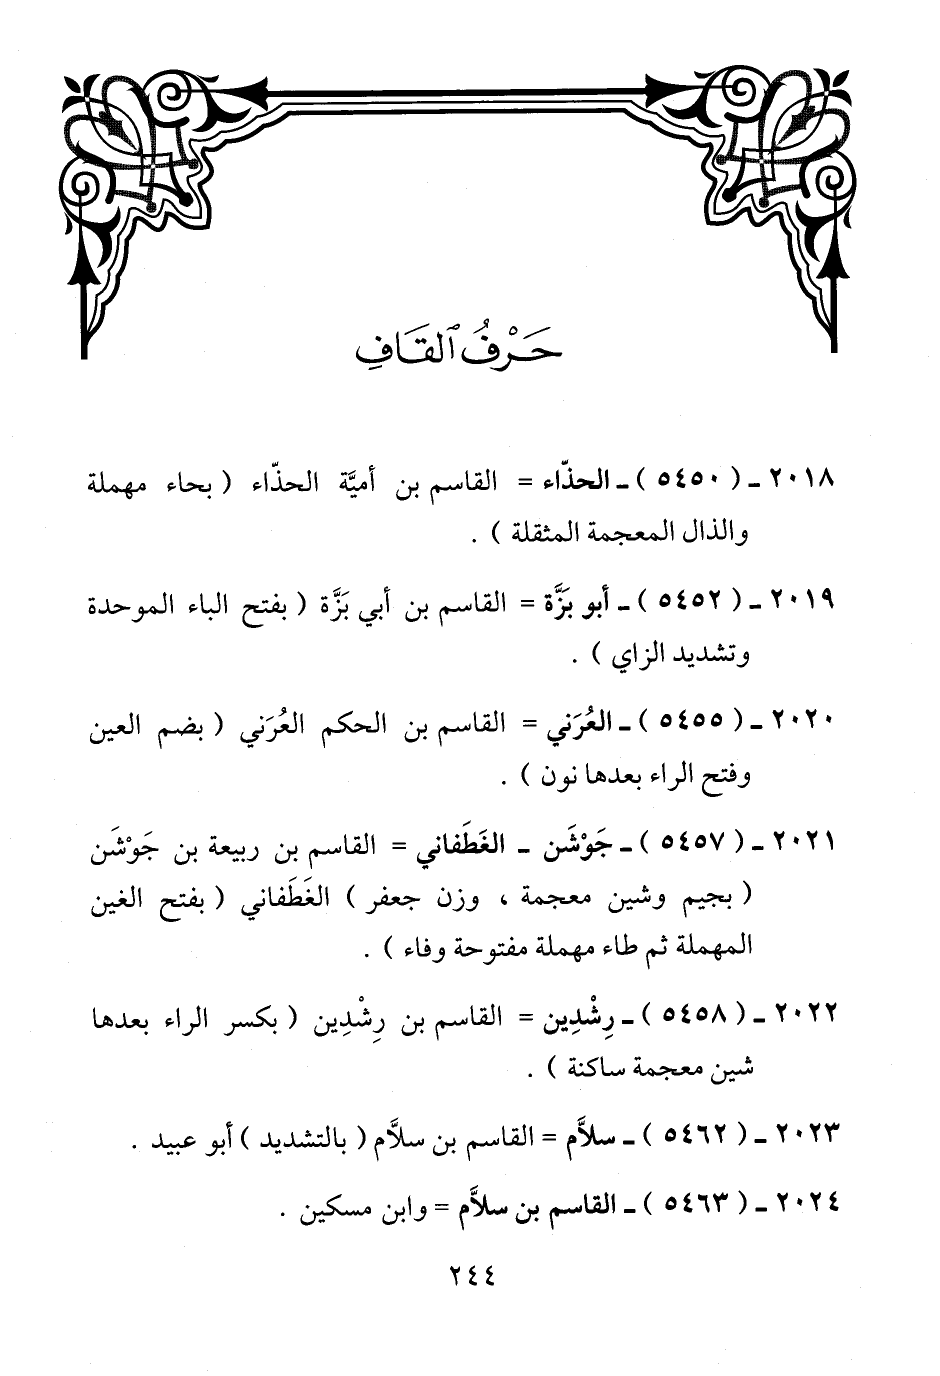 حَرْفُ ٱلقَافِ
٢٠١٨ ـ ( ٥٤٥٠ ) ـ الحذّاء = القاسم بن أميَّة الحذّاء ( بحاء مهملة
والذال المعجمة المثقلة ) .
٢٠١٩ ـ ( ٥٤٥٢ ) ـ أبو بَزَّة = القاسم بن أبي بَزَّة ( بفتح الباء الموحدة
وتشديد الزاي ) .
٢٠٢٠ ـ ( ٥٤٥٥ ) ـ العُرَني = القاسم بن الحكم العُرَني ( بضم العين
وفتح الراء بعدها نون ) .
٢٠٢١ ـ ( ٥٤٥٧ ) ـ جَوْشَن ـ الغَطَفاني = القاسم بن ربيعة بن جَوْشَن
( بجيم وشين معجمة ، وزن جعفر ) الغَطَفاني ( بفتح الغين
المهملة ثم طاء مهملة مفتوحة وفاء ) .
٢٠٢٢ ـ ( ٥٤٥٨ ) ـ رِشْدِين = القاسم بن رِشْدِين ( بكسر الراء بعدها
شين معجمة ساكنة ) .
٢٠٢٣ ـ ( ٥٤٦٢ ) ـ سلاَّم = القاسم بن سلاَّم ( بالتشديد ) أبو عبيد .
٢٠٢٤ ـ ( ٥٤٦٣ ) ـ القاسم بن سلاَّم = وابن مسكين .
٢٤٤